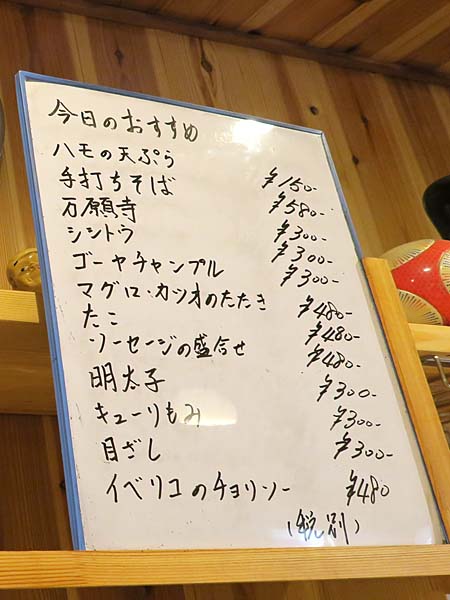 今日のおすすめ
ハモの天ぷら ¥150-
手打ちそば ¥580-
万願寺 ¥300-
シシトウ ¥300-
ゴーヤチャンプル ¥300-
マグロ・カツオのたたき ¥480-
たこ ¥480-
ソーセージの盛合せ ¥480-
明太子 ¥300-
キューりもみ ¥300-
目ざし ¥300-
イベリコのチョリソー ¥480
(税別)